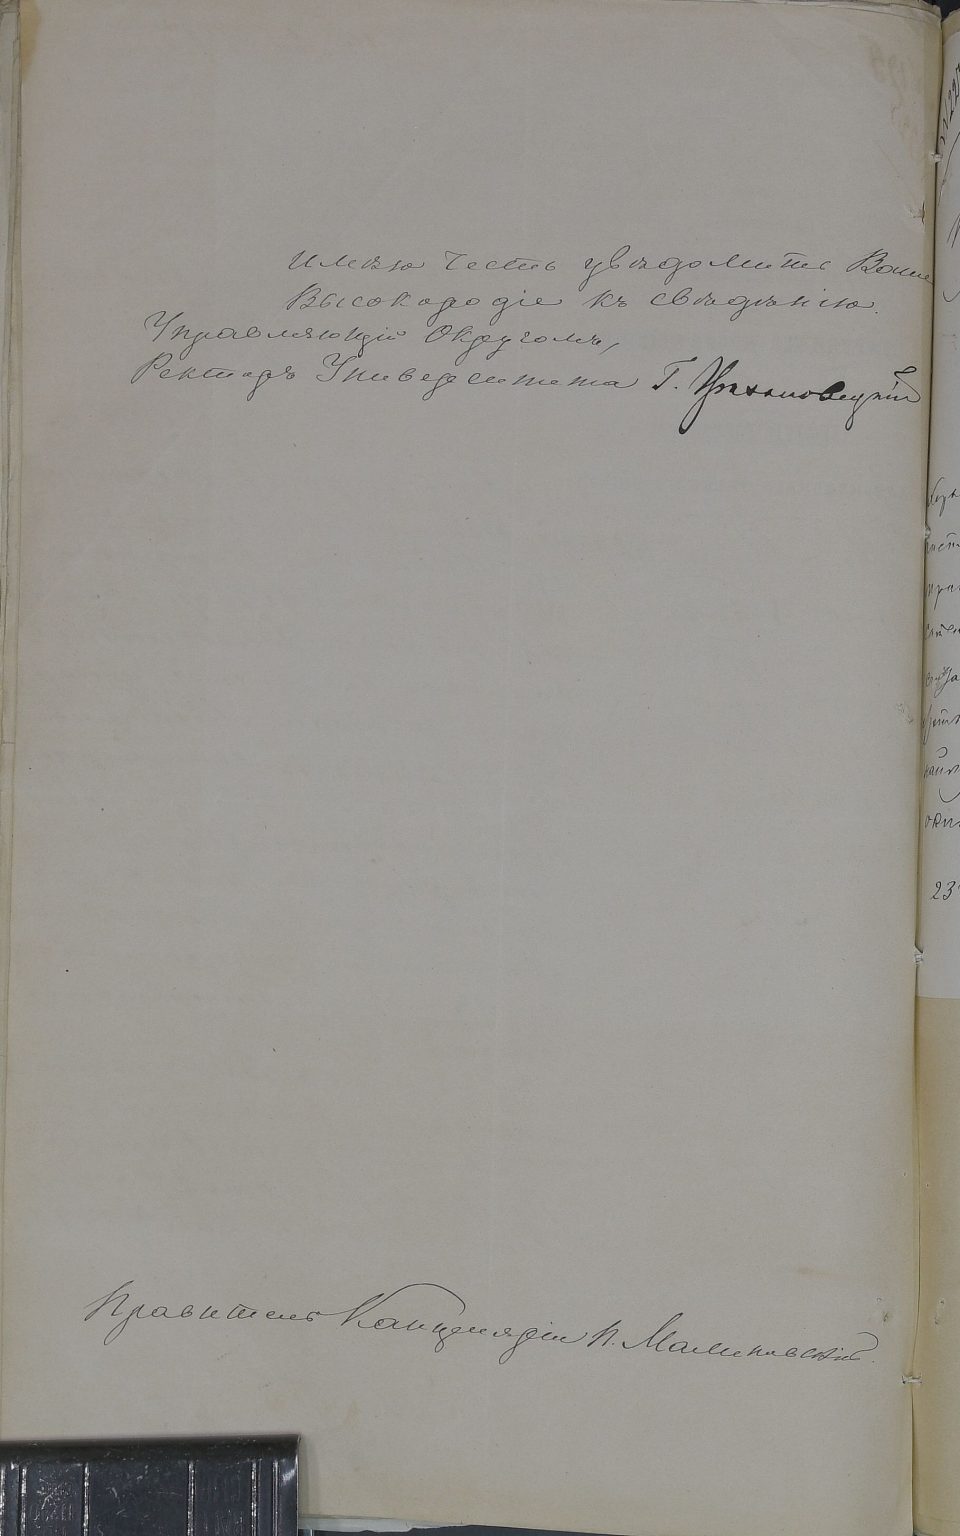 имѣю честь увѣдомить Ваше
Высокородіе къ свѣдѣнію.
Управляющій Округомъ,
Ректоръ Университета Г. Цѣхановецкій
Правитель Канцеляріи П. Малиновскій.
23